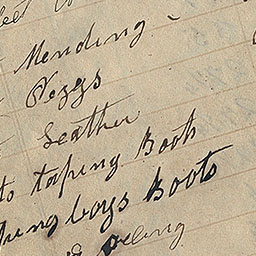 Mending
Peggs
Leather
to taping Boots
boys Boots